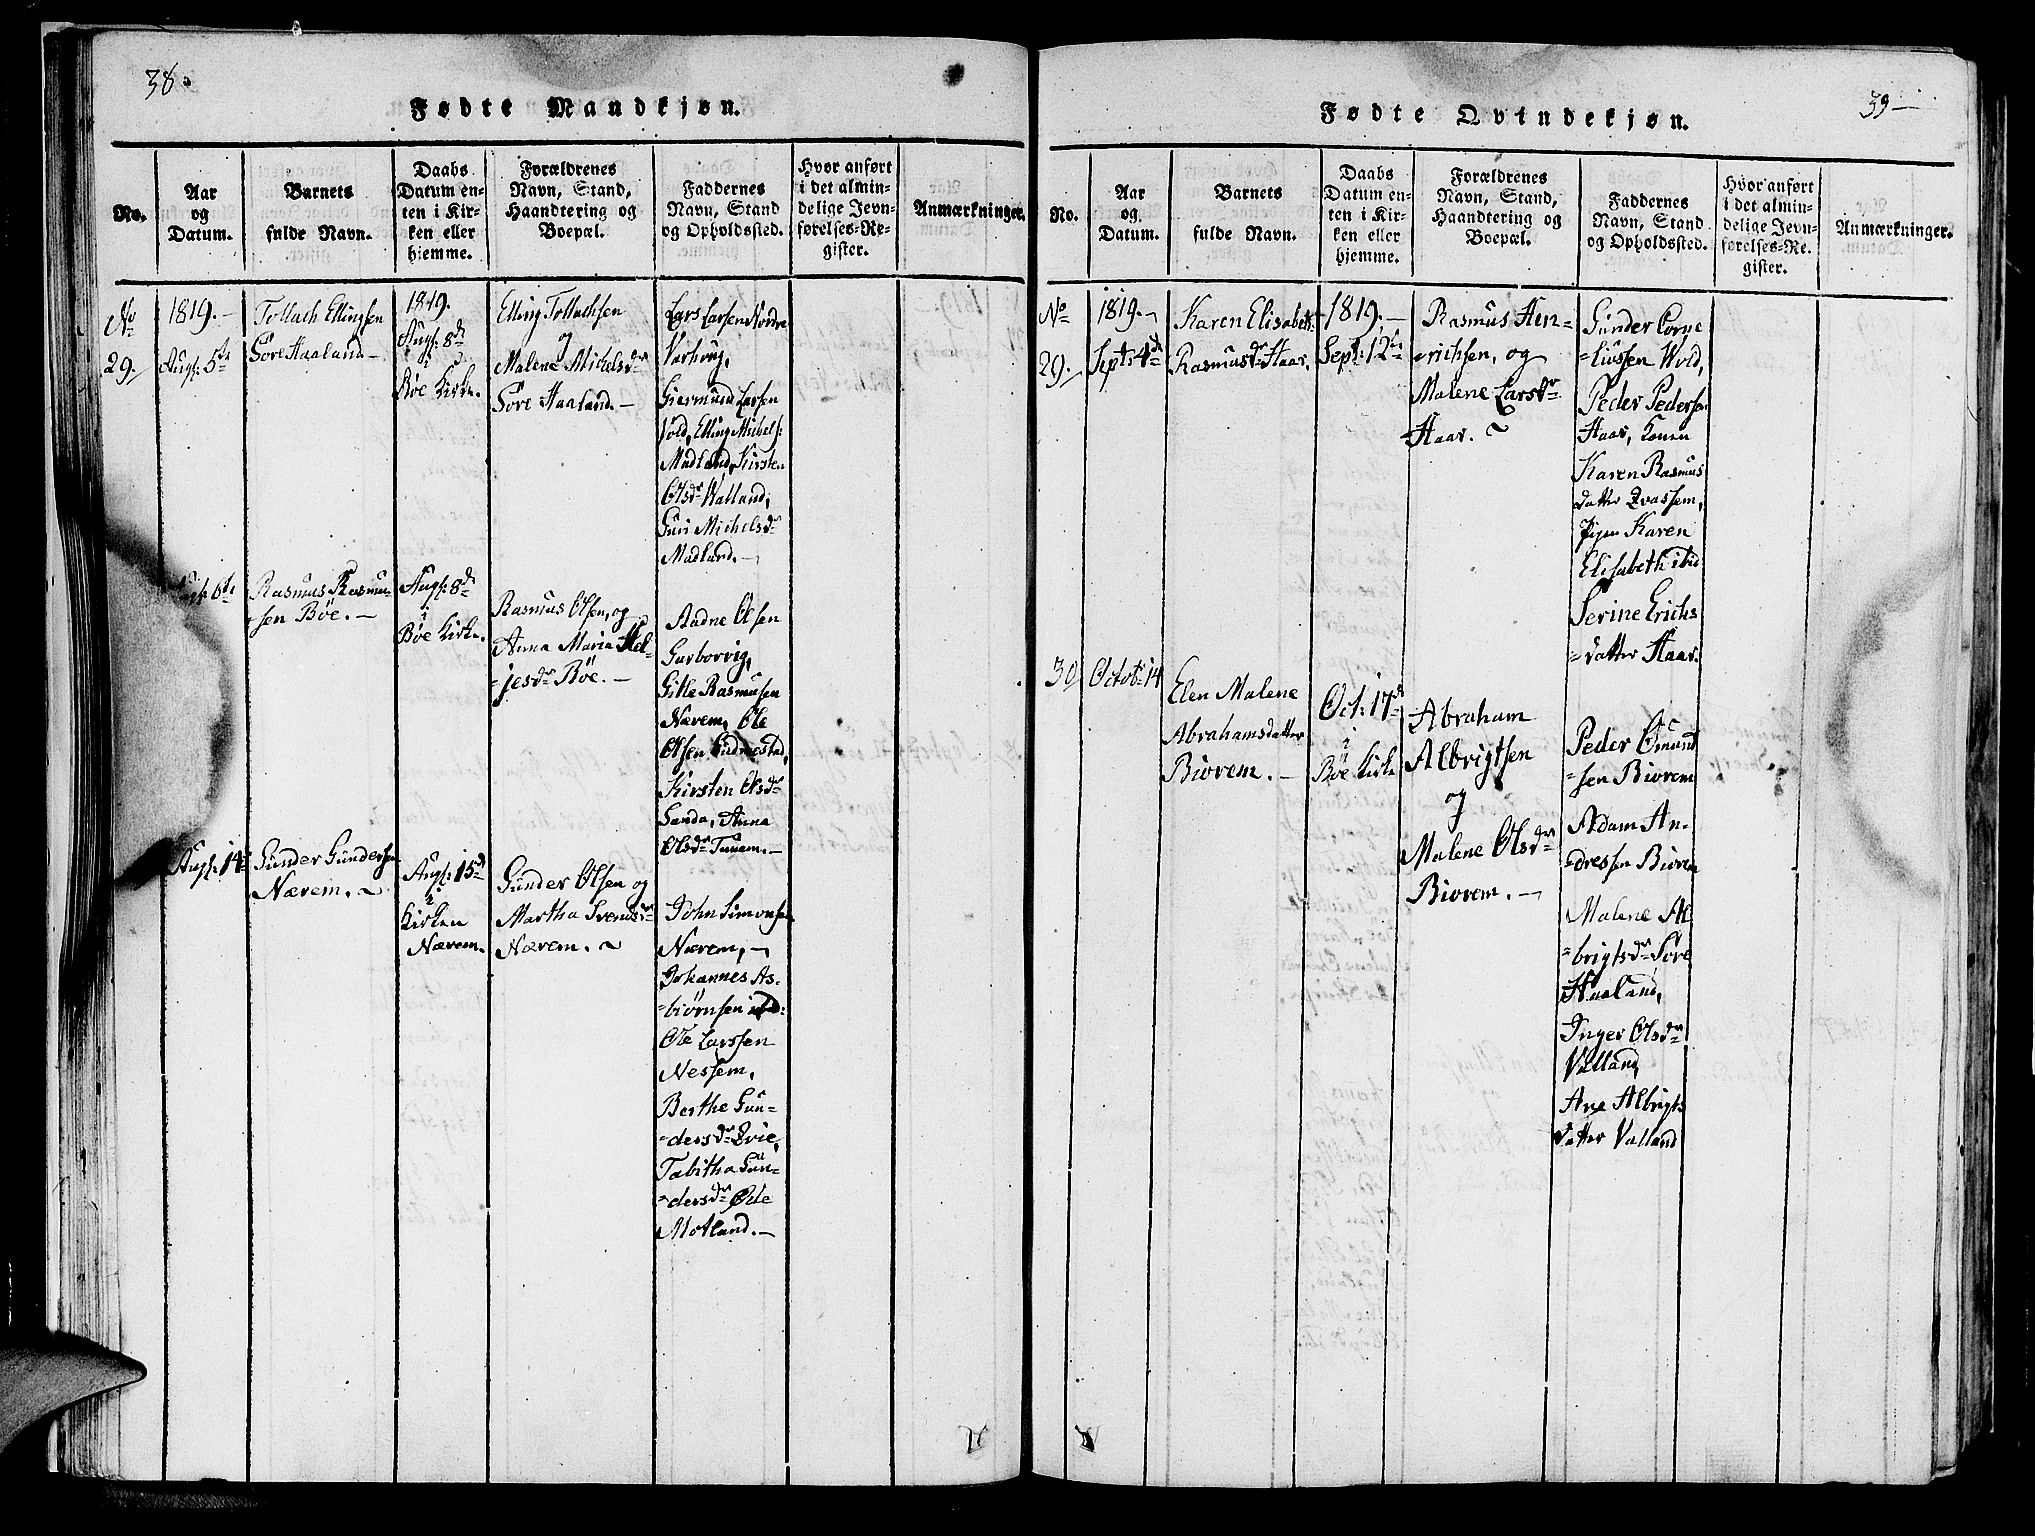 38.
Fødte Mandkjøn.
No.
Aar
og
Datum.
Barnets
fulde Navn.
Daabs
Datum en-
ten i Kir-
ken eller
hjemme.
Forældrenes
Navn, Stand,
Haandtering og
Boepæl.
Faddernes
Navn, Stand
og Opholdssted.
Hvor anført
i det almin-
delige Jevn-
førelses-Re-
gister.
Anmærkninger.
No
29.
1819. —
Augs: 5te
Tollach Ellingsen
Søre Haaland —
1819.
Augs: 8de
i
Bøe Kirke.
Elling Tollachsen
og
Malene Michelsdr
Søre Haaland. —
Lars Larsen Nordre
Varhoug,
Giermund Larsen
Vold, Elling Michels:
Madland, Kirsten
Olsdr Walland,
Guri Michelsdr
Madland. —
Augs: 6te
Rasmus Rasmu-
sen Bøe. —
Augs: 8de
i
Bøe Kirke.
Rasmus Olsen, og
Anna Maria Hel-
jesdr Bøe. —
Aadne Olsen
Garborvig,
Gitle Rasmusen
Nærem, Ole
Olsen Gudmestad,
Kirsten Olsdr
Sanda, Anna
Olsdr Tunem. —
Augs: 14de
Gunder Gundersen
Nærem. ~
Augs: 15de
i
Kirken
Nærem.
Gunder Olsen og
Martha Svendsdr
Nærem. ~
John Simonsen
Nærem, —
Johannes As-
biørnsen ibd:
Ole Larssen
Nessem,
Berthe Gun-
dersdr Qvie,
Tabitha Gun-
dersdr Øde
Motland. —
39 —
Fødte Qvindekjøn.
No.
Aar
og
Datum.
Barnets
fulde Navn.
Daabs
Datum en-
ten i Kir-
ken eller
hjemme.
Forældrenes
Navn, Stand,
Haandtering og
Boepæl.
Faddernes
Navn, Stand
og Opholdssted.
Hvor anført
i det almin-
delige Jevn-
førelses-Re-
gister.
Anmærkninger.
No
29.
1819. —
Septr 4de
Karen Elisabeth
Rasmusdr Haar.
1819. —
Sept: 12te
Rasmus Hen-
richsen, og
Malene Larsdr
Haar. ~
Gunder Corne-
liussen Wold,
Peder Pedersen
Haar, Konen
Karen Rasmus
datter Qvassem,
Pigen Karen
Elisabeth ibid
Serine Erichs
datter Haar.
30
Octobr 14
Elen Malene
Abrahamsdatter
Biorem. —
Oct: 17de
i
Bøe Kirke
Abraham
Albrigtsen
og
Malene Olsdr
Biorem. —
Peder Omund
sen Biorem
Adam An-
dressen Biorem
Malene Al
brigtsdr Søre
Haaland,
Inger Olsdr
Valland,
Ane Albrigts
datter Valland